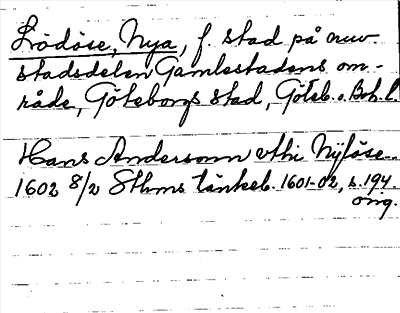 Lödöse, Nya, f. stad på nuv.
stadsdelen Gamlestadens om-
råde, Göteborgs stad, Göteb. o. Boh. l.
Hans Andersonn vthi Nylöse..
1602 8/2 Sthms tänkeb. 1601-02, s. 194.
orig.